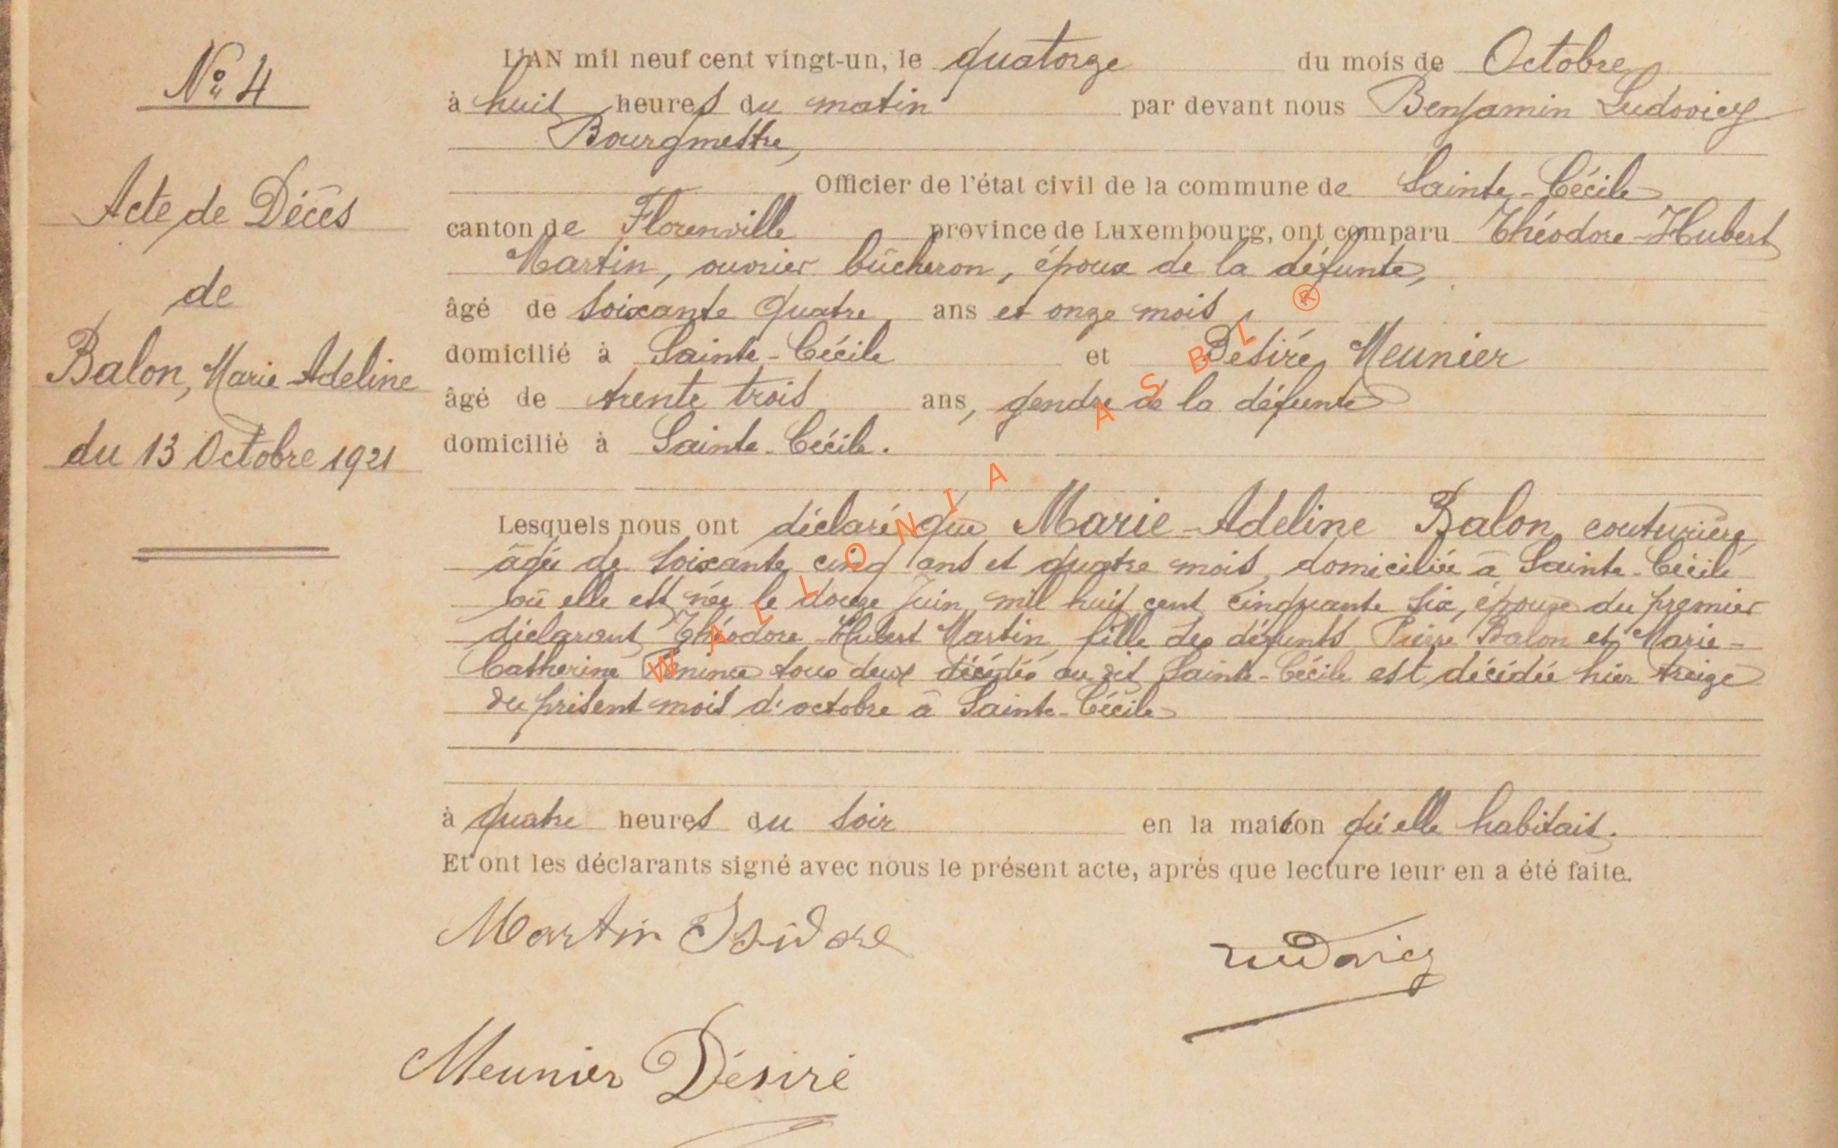 N° 4
Acte de Décès
de
Balon, Marie Adeline
du 13 Octobre 1921
L'AN mil neuf cent vingt-un, le quatorze du mois de Octobre
à huit heures du matin par devant nous Benjamin Ludovicy
Bourgmestre,
Officier de l'état civil de la commune de Sainte-Cécile
canton de Florenville province de Luxembourg, ont comparu Théodore-Hubert
Martin, ouvrier bûcheron, époux de la défunte,
âgé de soixante quatre ans et onze mois,
domicilié à Sainte-Cécile et Désiré Meunier
âgé de trente trois ans, gendre de la défunte
domicilié à Sainte-Cécile.
Lesquels nous ont déclaré que Marie-Adeline Balon, couturière,
âgée de soixante cinq ans et quatre mois, domiciliée à Sainte-Cécile
où elle est née le douze Juin mil huit cent cinquante six, épouse du premier
déclarant Théodore-Hubert Martin, fille des défunts Pierre Balon et Marie-
Catherine tous deux décédés au dit Sainte-Cécile est décédée hier treize
du présent mois d'octobre à Sainte-Cécile
à quatre heures du soir en la maison qu'elle habitait.
Et ont les déclarants signé avec nous le présent acte, après que lecture leur en a été faite.
Martin Isidore
Ludovicy
Meunier Désiré
WALLONIA ASBL ®